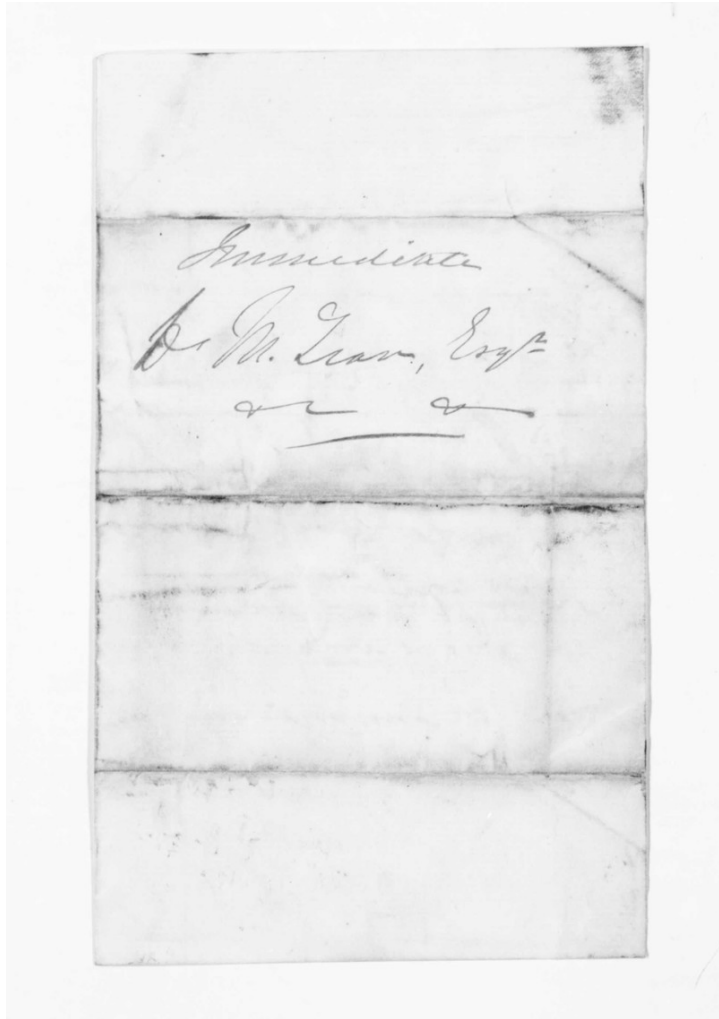 Immediate
M. Lean, Esqre